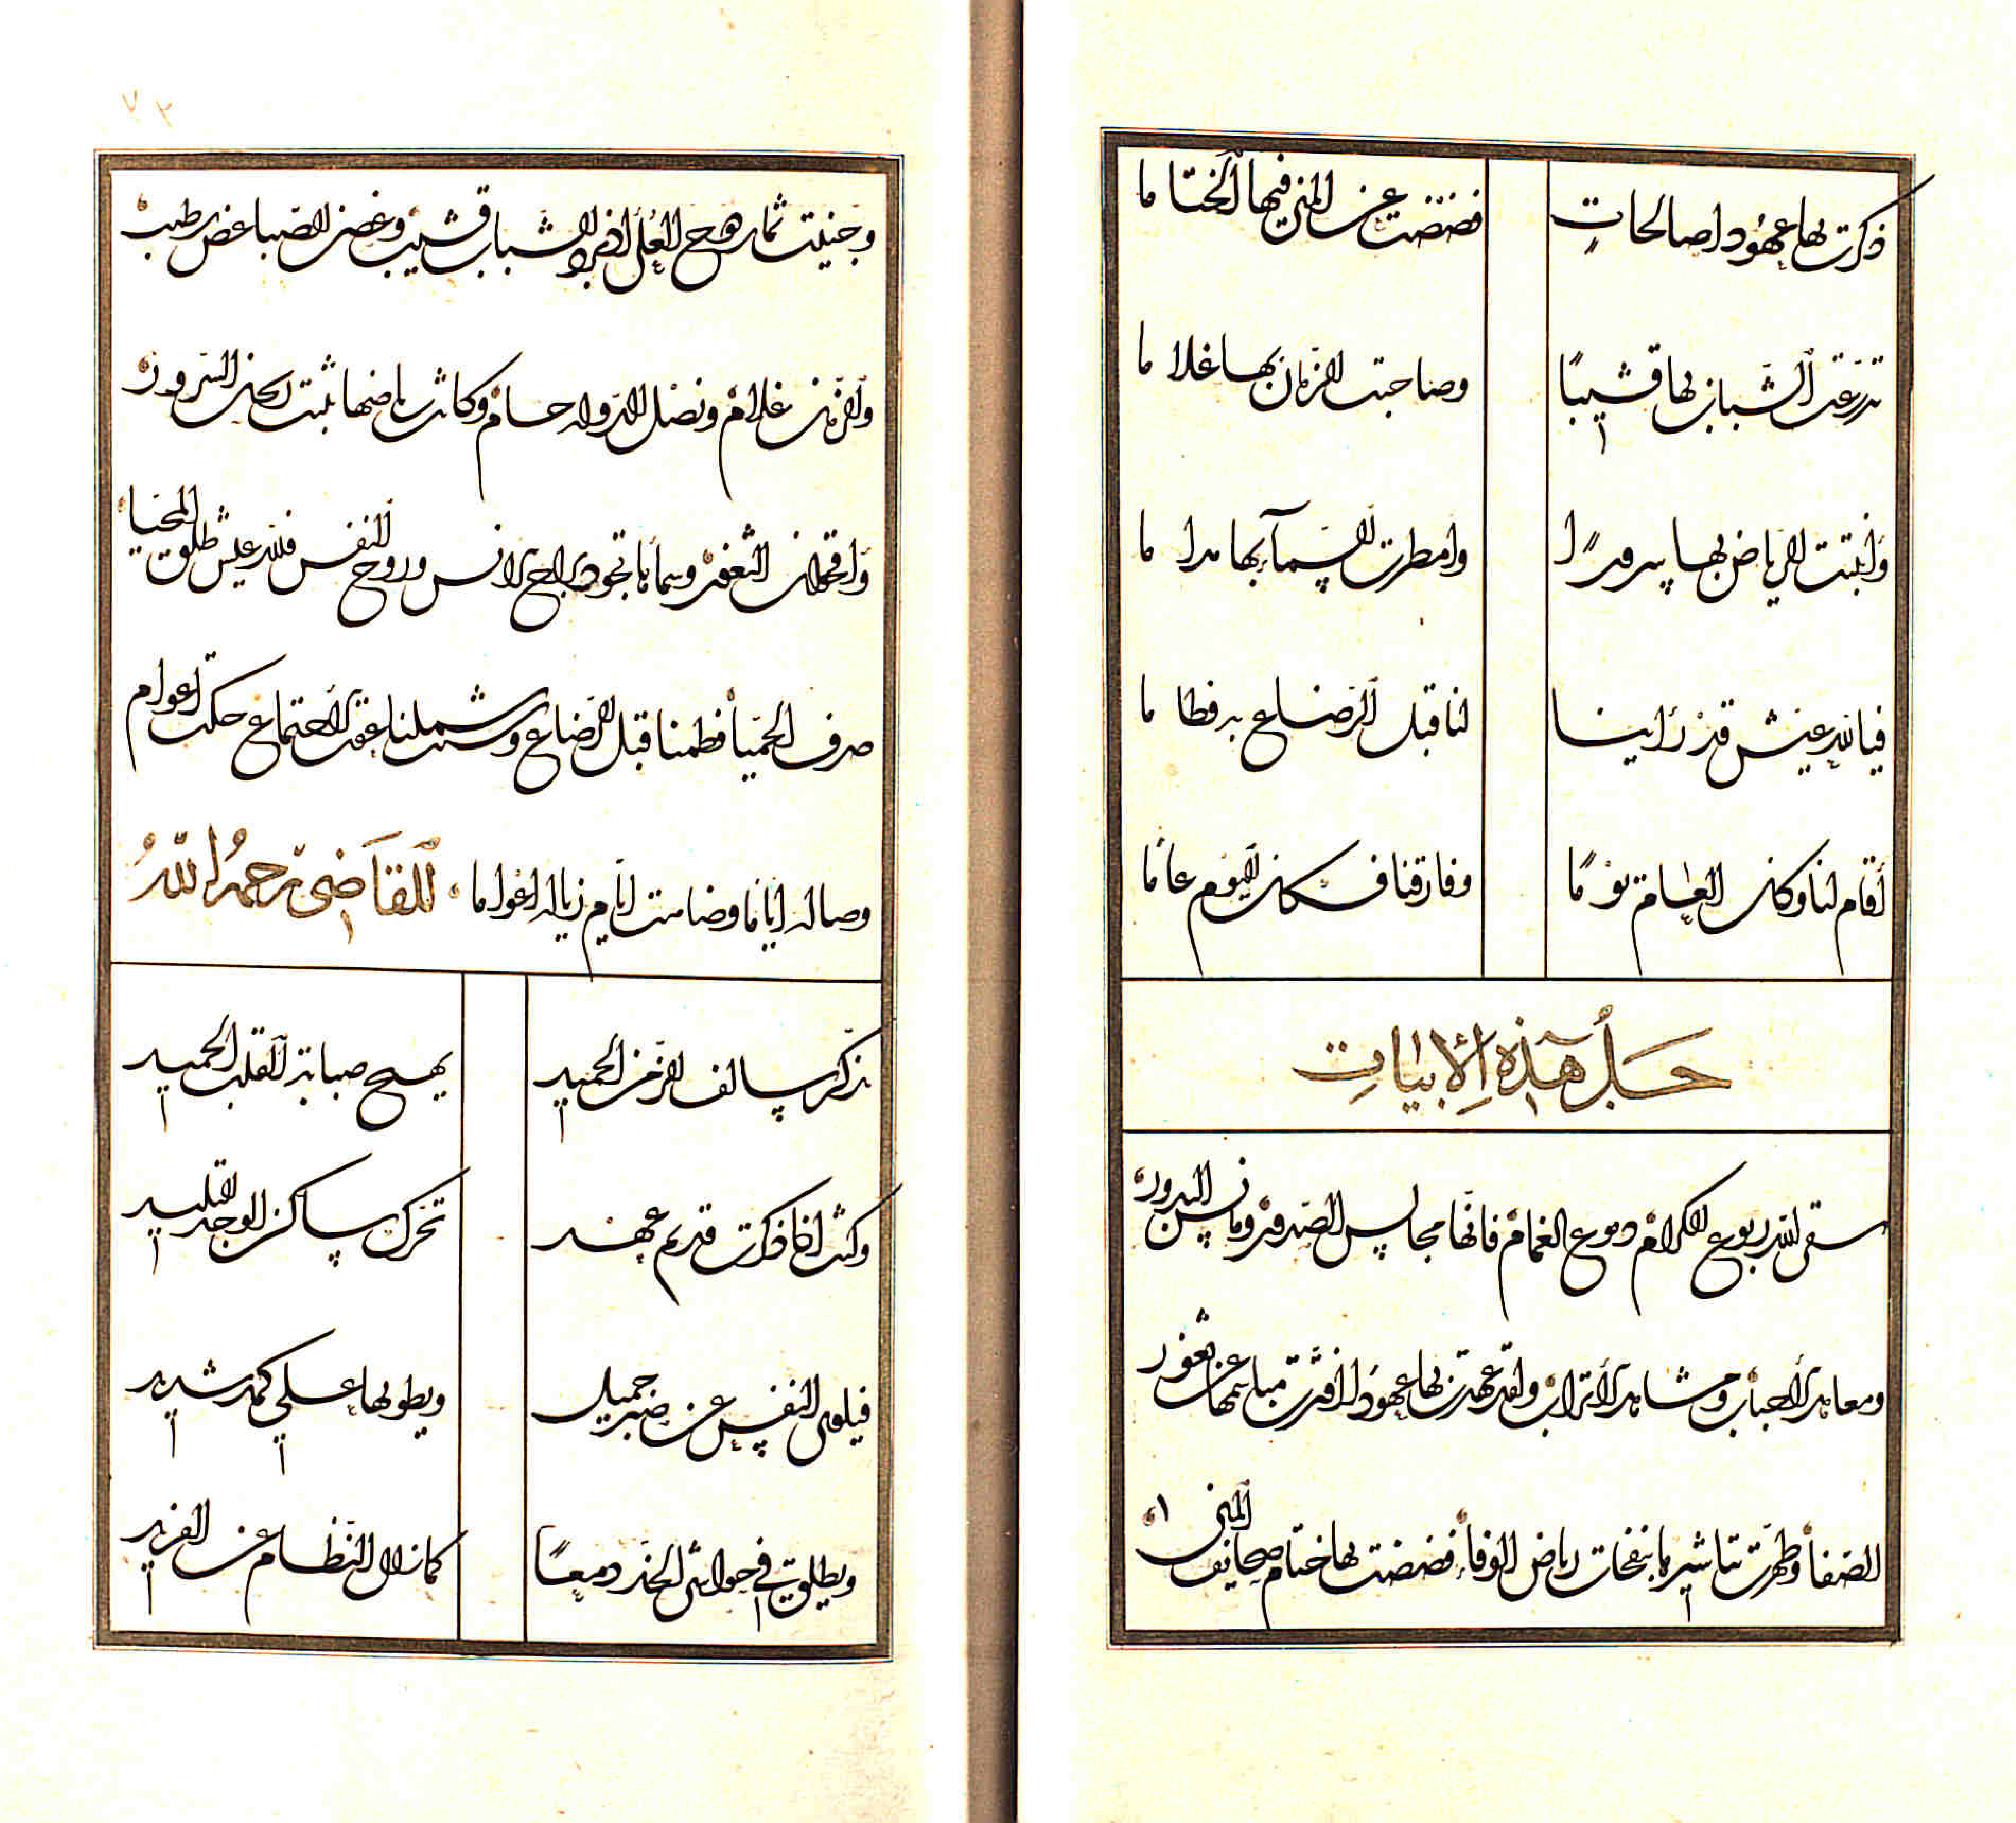 ذكرت بها عهودا صالحاتٍ فضضت عن المنى فيها الختاما
تدرّعت الشباب بها قشيبًا وصاحبت الزمان بها غلاما
وأنبتت الرياض بها سرورًا وامطرت السماء بها مداما
فيا لله عيش قد رأينا لنا قبل الرضاع به فطاما
أقام لنا وكان العام يومًا وفارقنا فكان اليوم عاما
حلّ هذه الأبيات
سقى الله ربوع الكرام دموع الغمام فانّها مجالس الصدور البدور
ومعاهد الأحباب ومشاهد الأتراب ولقد عهدت بها عهودًا افترّت مباسمها عن ثغور
الصفاء وظهرت تباشيرها بنفحات رياض الوفاء فضضت بها ختام صحايف المنى
٧٢
وجنيت ثمار العُلى اذ برد الشباب قشيب وغصن الصبا غض رطيب
والزمان غلام ونصل الدولة حسام وكانت رياضها تنبت السرور
الثغور وسماؤها تجود براح الانس وروح النفس فلله عيش طلق المحيا
صرف الحميا فطمنا قبل الرضاع وشتت شملنا عقيب الاجتماع حكت اعوام
وصاله ايّاما وضاهت ايّام زياله اعواما للقاضى رحمه الله
تذكّر سالف الزمن الحميد يهيج صبابة القلب العميد
وكنت اذا ذكرت قديم عهد تحرّك ساكن الوجد التليد
فيلوى النفس عن صبر جميل ويطويها على كمد شديد
ويطلق فى حواشى الخد دمعًا كما زال النظام عن الفريد